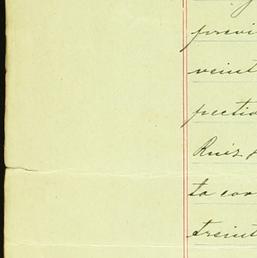 previ
veint
pectio
Ruiz y
ta co
treint